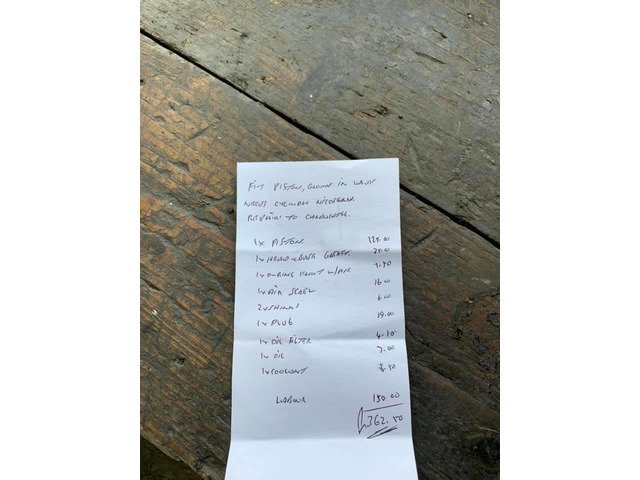 FIT PISTON, GROUND IN VALVE
NEEDS CYLINDER
REPAIR TO
1x PISTON 125.00
1x HEAD + BASE GASKET 25.00
1x O-RING 1.50
1x AIR SCREW 16.00
2x SHIMS 6.00
1x PLUG 19.00
1x OIL FILTER 4.50
1x OIL 7.00
1x COOLANT 8.50
LABOUR 150.00
£362.50